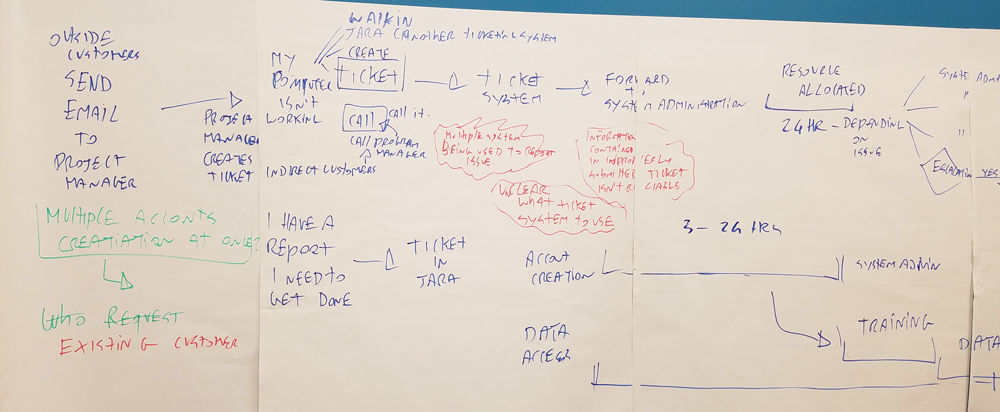 OUSIDE
CUSTOMERS
SEND
EMAIL
TO
PROJECT
MANAGER
PROJECT
MANAGER
CREATES
TICKET
WALKIN
JARA (ANOTHER TICKETING SYSTEM
CREATE
MY
COMPUTER
ISN'T
WORKING
TICKET
CALL
CALL it.
CALL PROGRAM
MANAGER
INDIRECT CUSTOMERS
TICKET
SYSTEM
FORWARD
SYSTEM ADMINISTRATION
RESOURCE
ALLOCATED
24 HR - DEPENDING
ON
ISSUE
SYSTE ADMI
"
"
ESCALATION
YES
MULTIPLE SYSTEM
BEING USED TO REPORT
ISSUE
INFORMATION
CONTAINED
IN IMPROPERLY
SUBMITTED TICKET
ISN'T RELIABLE
UNCLEAR
WHAT TICKET
SYSTEM TO USE
MULTIPLE ACCONTS
CREATIATION AT ONCE?
WHO REQUEST
EXISTING CUSTOMER
I HAVE A
REPORT
I NEED TO
GET DONE
TICKET
IN
JARA
ACCONT
CREATION
3 - 24 HRS
SYSTEM ADMIN
TRAINING
DATA
ACCESS
DATA